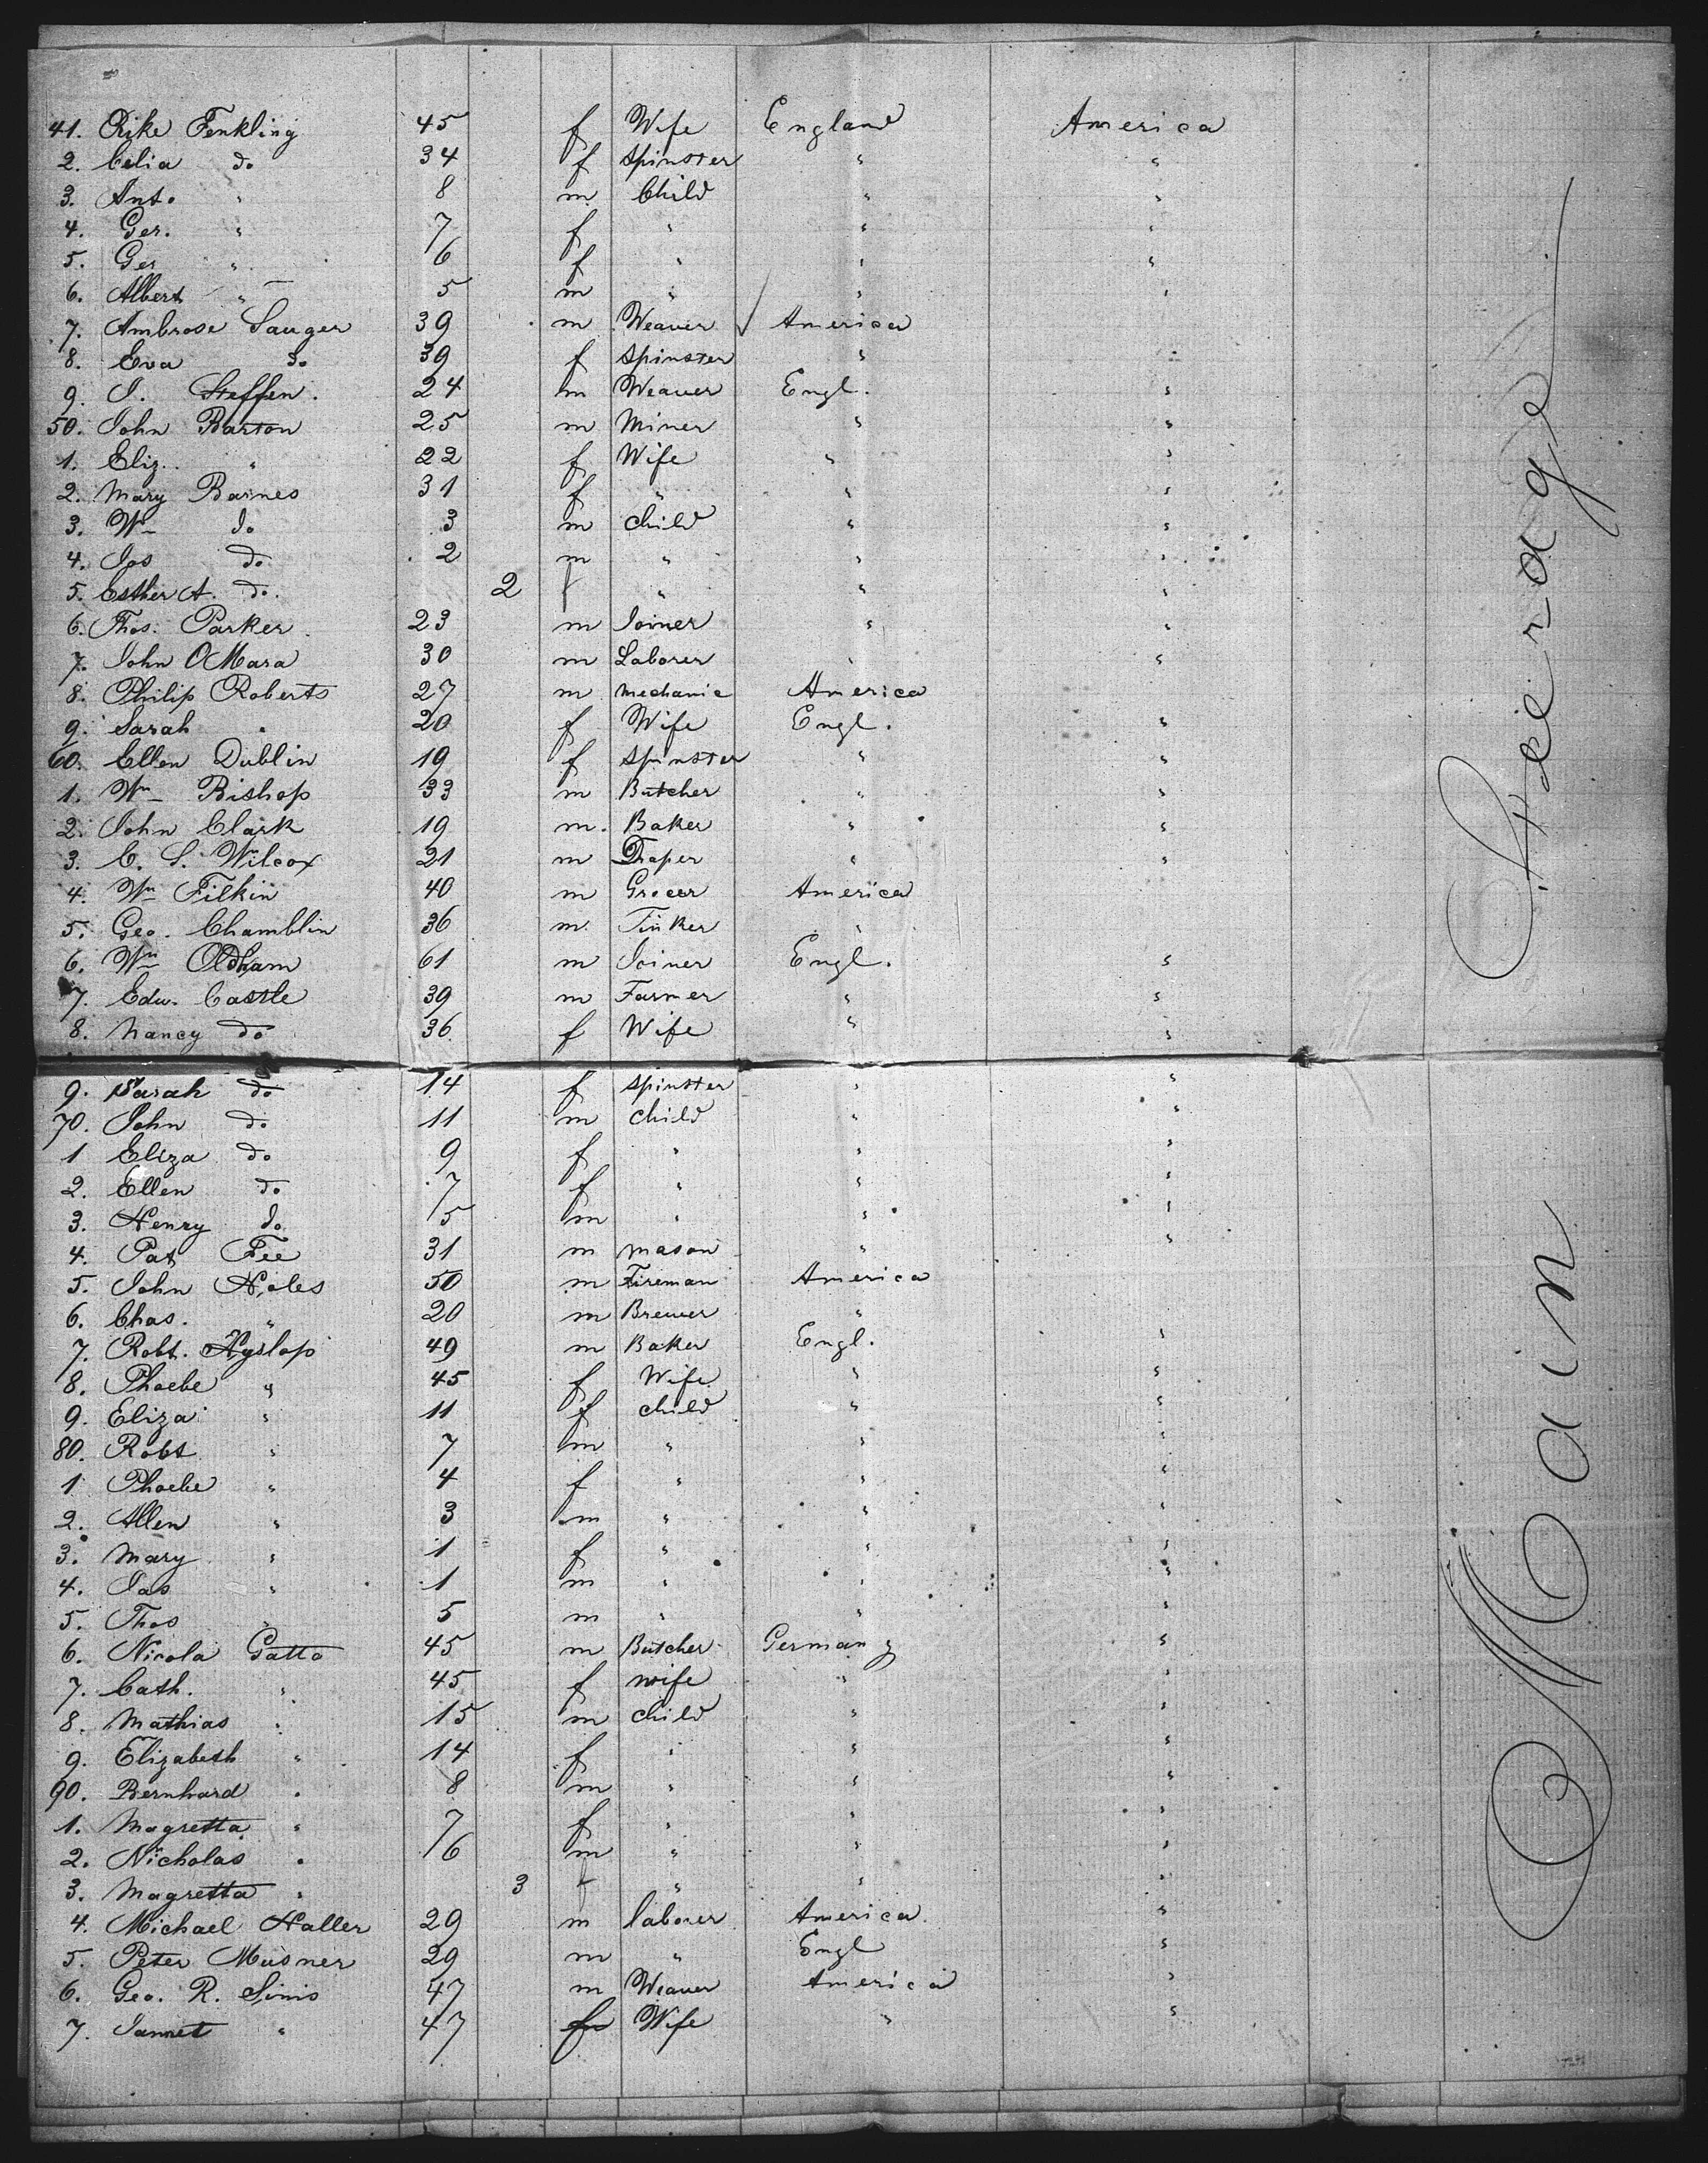 41. Rike Fenkling 45 f Wife England America
2. Celia do 34 f Spinster " "
3. Ant. " 8 m Child " "
4. Ger. " 7 f " " "
5. Ger " 6 f " " "
6. Albert " 5 m " " "
7. Ambrose Sauger 39 m Weaver √ America
8. Eva do 39 f Spinster "
9. J. Steffen. 24 m Weaver Engl. "
50. John Barton 25 m Miner " "
1. Eliz. " 22 f Wife " "
2. Mary Barnes 31 f " " "
3. Wm do 3 m child " "
4. Jos do 2 m " " "
5. Esther A. do. 2 f " " "
6. Thos. Parker 23 m Joiner " "
7. John OMara 30 m Laborer " "
8. Philip Roberts 27 m mechanic America
9. Sarah " 20 f Wife Engl. "
60. Ellen Dublin 19 f Spinster " "
1. Wm Bishop 33 m Butcher " "
2. John Clark 19 m. Baker " "
3. C. S. Wilcox 21 m Draper " "
4. Wm Filkin 40 m Grocer America
5. Geo. Chamblin 36 m. Tinker "
6. Wm Oldham 61 m Joiner Engl. "
7. Edw. Castle 39 m Farmer " "
8. Nancy do 36 f Wife " "
9. Sarah do 14 f Spinster " "
70. John do 11 m child " "
1 Eliza do 9 f " " "
2. Ellen do 7 f " " "
3. Henry do 5 m " " "
4. Pat Fee 31 m mason " "
5. John Noles 50 m Fireman America
6. Chas. " 20 m Brewer "
7. Robt. Hyslop 49 m Baker Engl. "
8. Phoebe " 45 f Wife " "
9. Eliza " 11 f child " "
80. Robt " 7 m " " "
1 Phoebe " 4 f " " "
2. Allen " 3 m " " "
3. Mary " 1 f " " "
4. Jas " 1 m " " "
5. Thos " 5 m " " "
6. Nicola Gatto 45 m Butcher Germany "
7. Cath. " 45 f wife " "
8. Mathias " 15 m child " "
9. Elizabeth " 14 f " " "
90. Bernhard " 8 m " " "
1. Magretta " 7 f " " "
2. Nicholas " 6 m " " "
3. Magretta " 3 f " " "
4. Michael Haller 29 m laborer America. "
5. Peter Musner 29 m " Engl "
6. Geo. R. Sims 47 m Weaver America "
7. Jannet " 47 f Wife " "
Steerage
Main